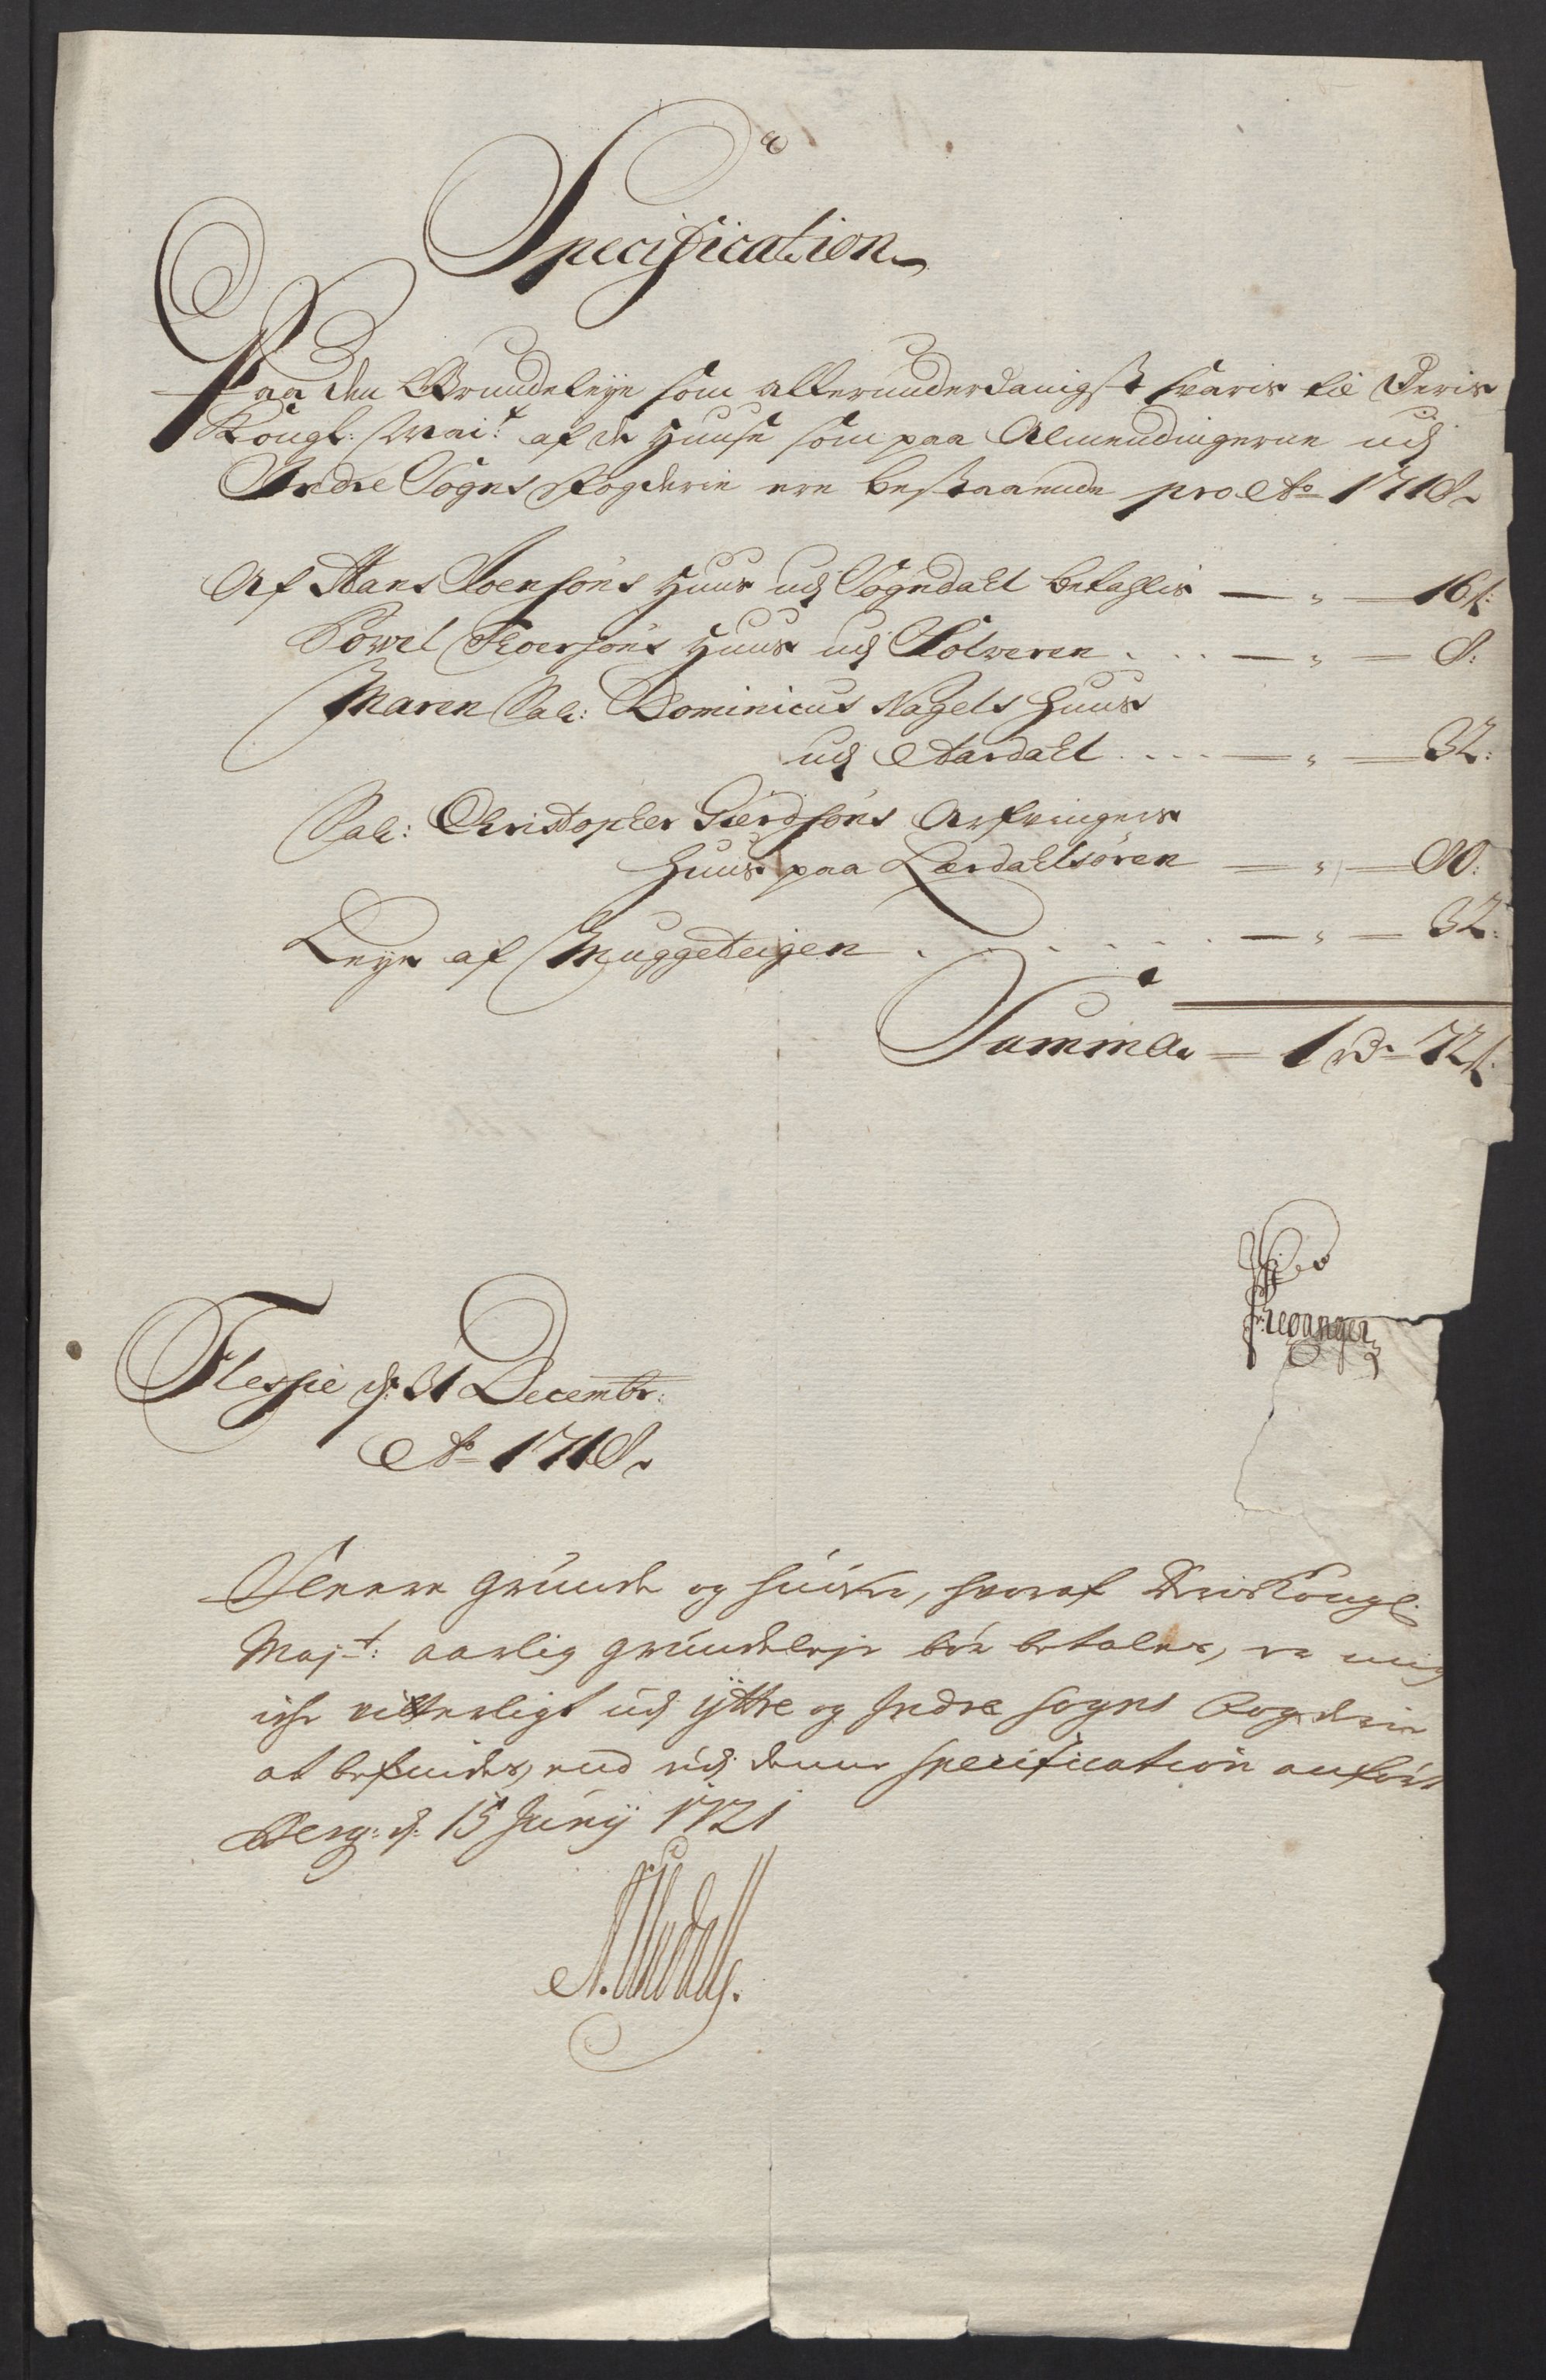 Specification
Paa den Grundeleye som allerunderdanigst svaris till Deris
Kongl: Mai:t af de Huuse som paa Almendingerne udj
Indre Sogns Fogderie ere bestaaende pro Ao 1718
Af Hans Joensöns Huus udj Sogndahl betahlis — " — 16 s:
Powel Iversöns Huus udj Solveren . . . — " — 8:
Maren Sal: Dominicus Nagels Huus
udj Aardahl . . . . — " — 32:
Sal: Christopher Giærdsöns Arfvingers
Huus paa Lærdahlsören — " — 80:
Leye af Muggeteigen . . . . . — " — 32:
Summa — 1 rdr 72 s:
Flessie dj: 31 Decembr:
Ao 1718
Fleere grunde og huuse, hvoraf Deris Kongl:
Majt: aarlig grundeleje bör betales, er mig
iche vitterligt udj ÿttre og Indre Sogns Fogderie
at befindes, end udj denne specification anfört
Berg: d: 15 Junÿ 1721